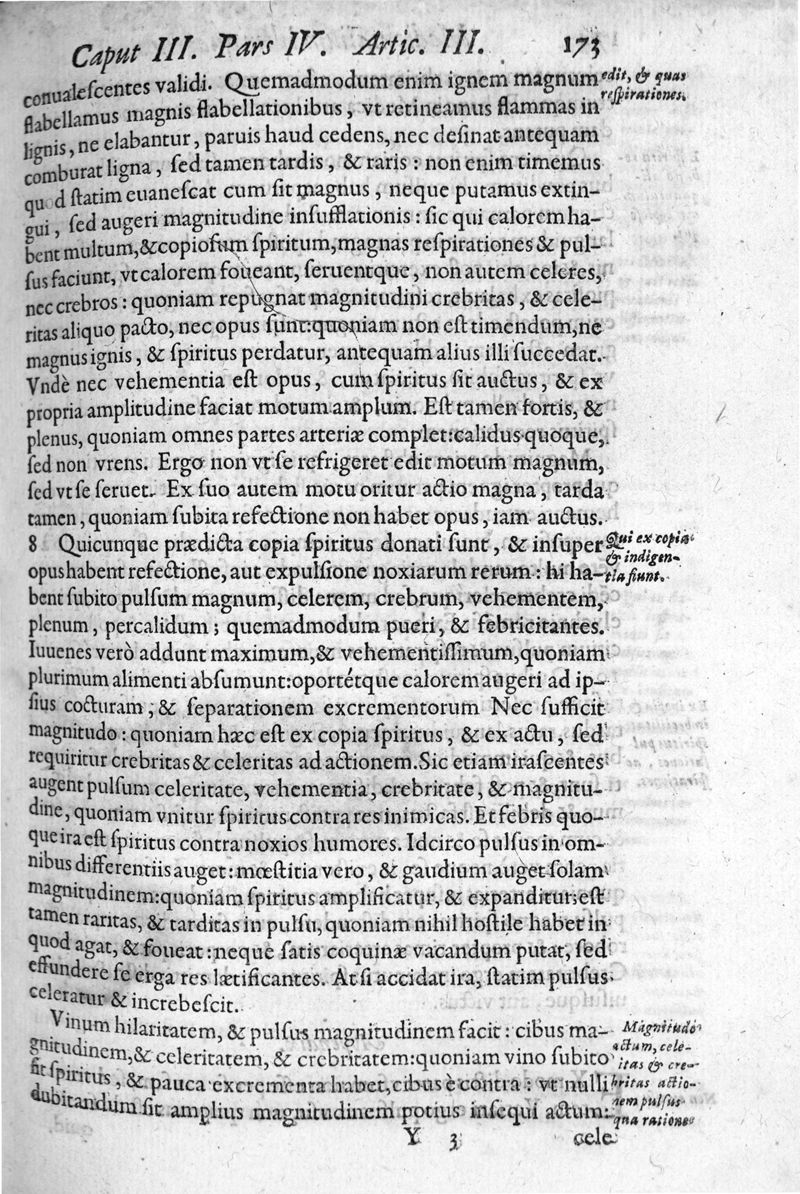 Caput III. Pars IV. Artic. III. 173
conualeſcentes validi. Quemadmodum enim ignem magnum
flabellamus magnis flabellationibus, vt retineamus flammas in
lignis, ne elabantur, paruis haud cedens, nec deſinat antequam
comburat ligna, ſed tamen tardis, & raris : non enim timemus
quod ſtatim euaneſcat cum ſit magnus, neque putamus extin-
gui, ſed augeri magnitudine inſufflationis : ſic qui calorem ha-
bent multum, & copioſum ſpiritum, magnas reſpirationes & pul-
ſus faciunt, vt calorem foueant, ſeruentque, non autem celeres,
nec crebros : quoniam repugnat magnitudini crebritas, & cele-
ritas aliquo pacto, nec opus ſunt: quoniam non eſt timendum, ne
magnus ignis, & ſpiritus perdatur, antequam alius illi ſuccedat.
Vndè nec vehementia eſt opus, cum ſpiritus ſit auctus, & ex
propria amplitudine faciat motum amplum. Eſt tamen fortis, &
plenus, quoniam omnes partes arteriæ complet: calidus quoque,
ſed non vrens. Ergo non vt ſe refrigeret edit motum magnum,
ſed vt ſe ſeruet. Ex ſuo autem motu oritur actio magna, tarda
tamen, quoniam ſubita refectione non habet opus, iam auctus.
8 Quicunque prædicta copia ſpiritus donati ſunt, & inſuper
opus habent refectione, aut expulſione noxiarum rerum : hi ha-
bent ſubito pulſum magnum, celerem, crebrum, vehementem,
plenum, percalidum ; quemadmodum pueri, & febricitantes.
Iuuenes verò addunt maximum, & vehementiſſimum, quoniam
plurimum alimenti abſumunt: oportétque calorem augeri ad ip-
ſius cocturam, & ſeparationem excrementorum Nec ſufficit
magnitudo : quoniam hæc eſt ex copia ſpiritus, & ex actu, ſed
requiritur crebritas & celeritas ad actionem. Sic etiam iraſcentes
augent pulſum celeritate, vehementia, crebritate, & magnitu-
dine, quoniam vnitur ſpiritus contra res inimicas. Et febris quo-
que ira eſt ſpiritus contra noxios humores. Idcirco pulſus in om-
nibus differentiis auget : mœſtitia vero, & gaudium auget ſolam
magnitudinem: quoniam ſpiritus amplificatur, & expanditur: eſt
tamen raritas, & tarditas in pulſu, quoniam nihil hoſtile habet in
quod agat, & foueat : neque ſatis coquinæ vacandum putat, ſed
effundere ſe erga res lætificantes. At ſi accidat ira, ſtatim pulſus
celeratur & increbeſcit.
Vinum hilaritatem, & pulſus magnitudinem facit : cibus ma-
gnitudinem, & celeritatem, & crebritatem: quoniam vino ſubito
fit ſpiritus, & pauca excrementa habet, cibus è contra : vt nulli
dubitandum ſit amplius magnitudinem potius inſequi actum:
Y 3 cele
edit, & quas
reſpirationes.
Qui ex copia
& indigen-
tia fiunt.
Magnitudo
actum, cele-
itas & cre-
britas actio-
nem pulſus
qua ratione